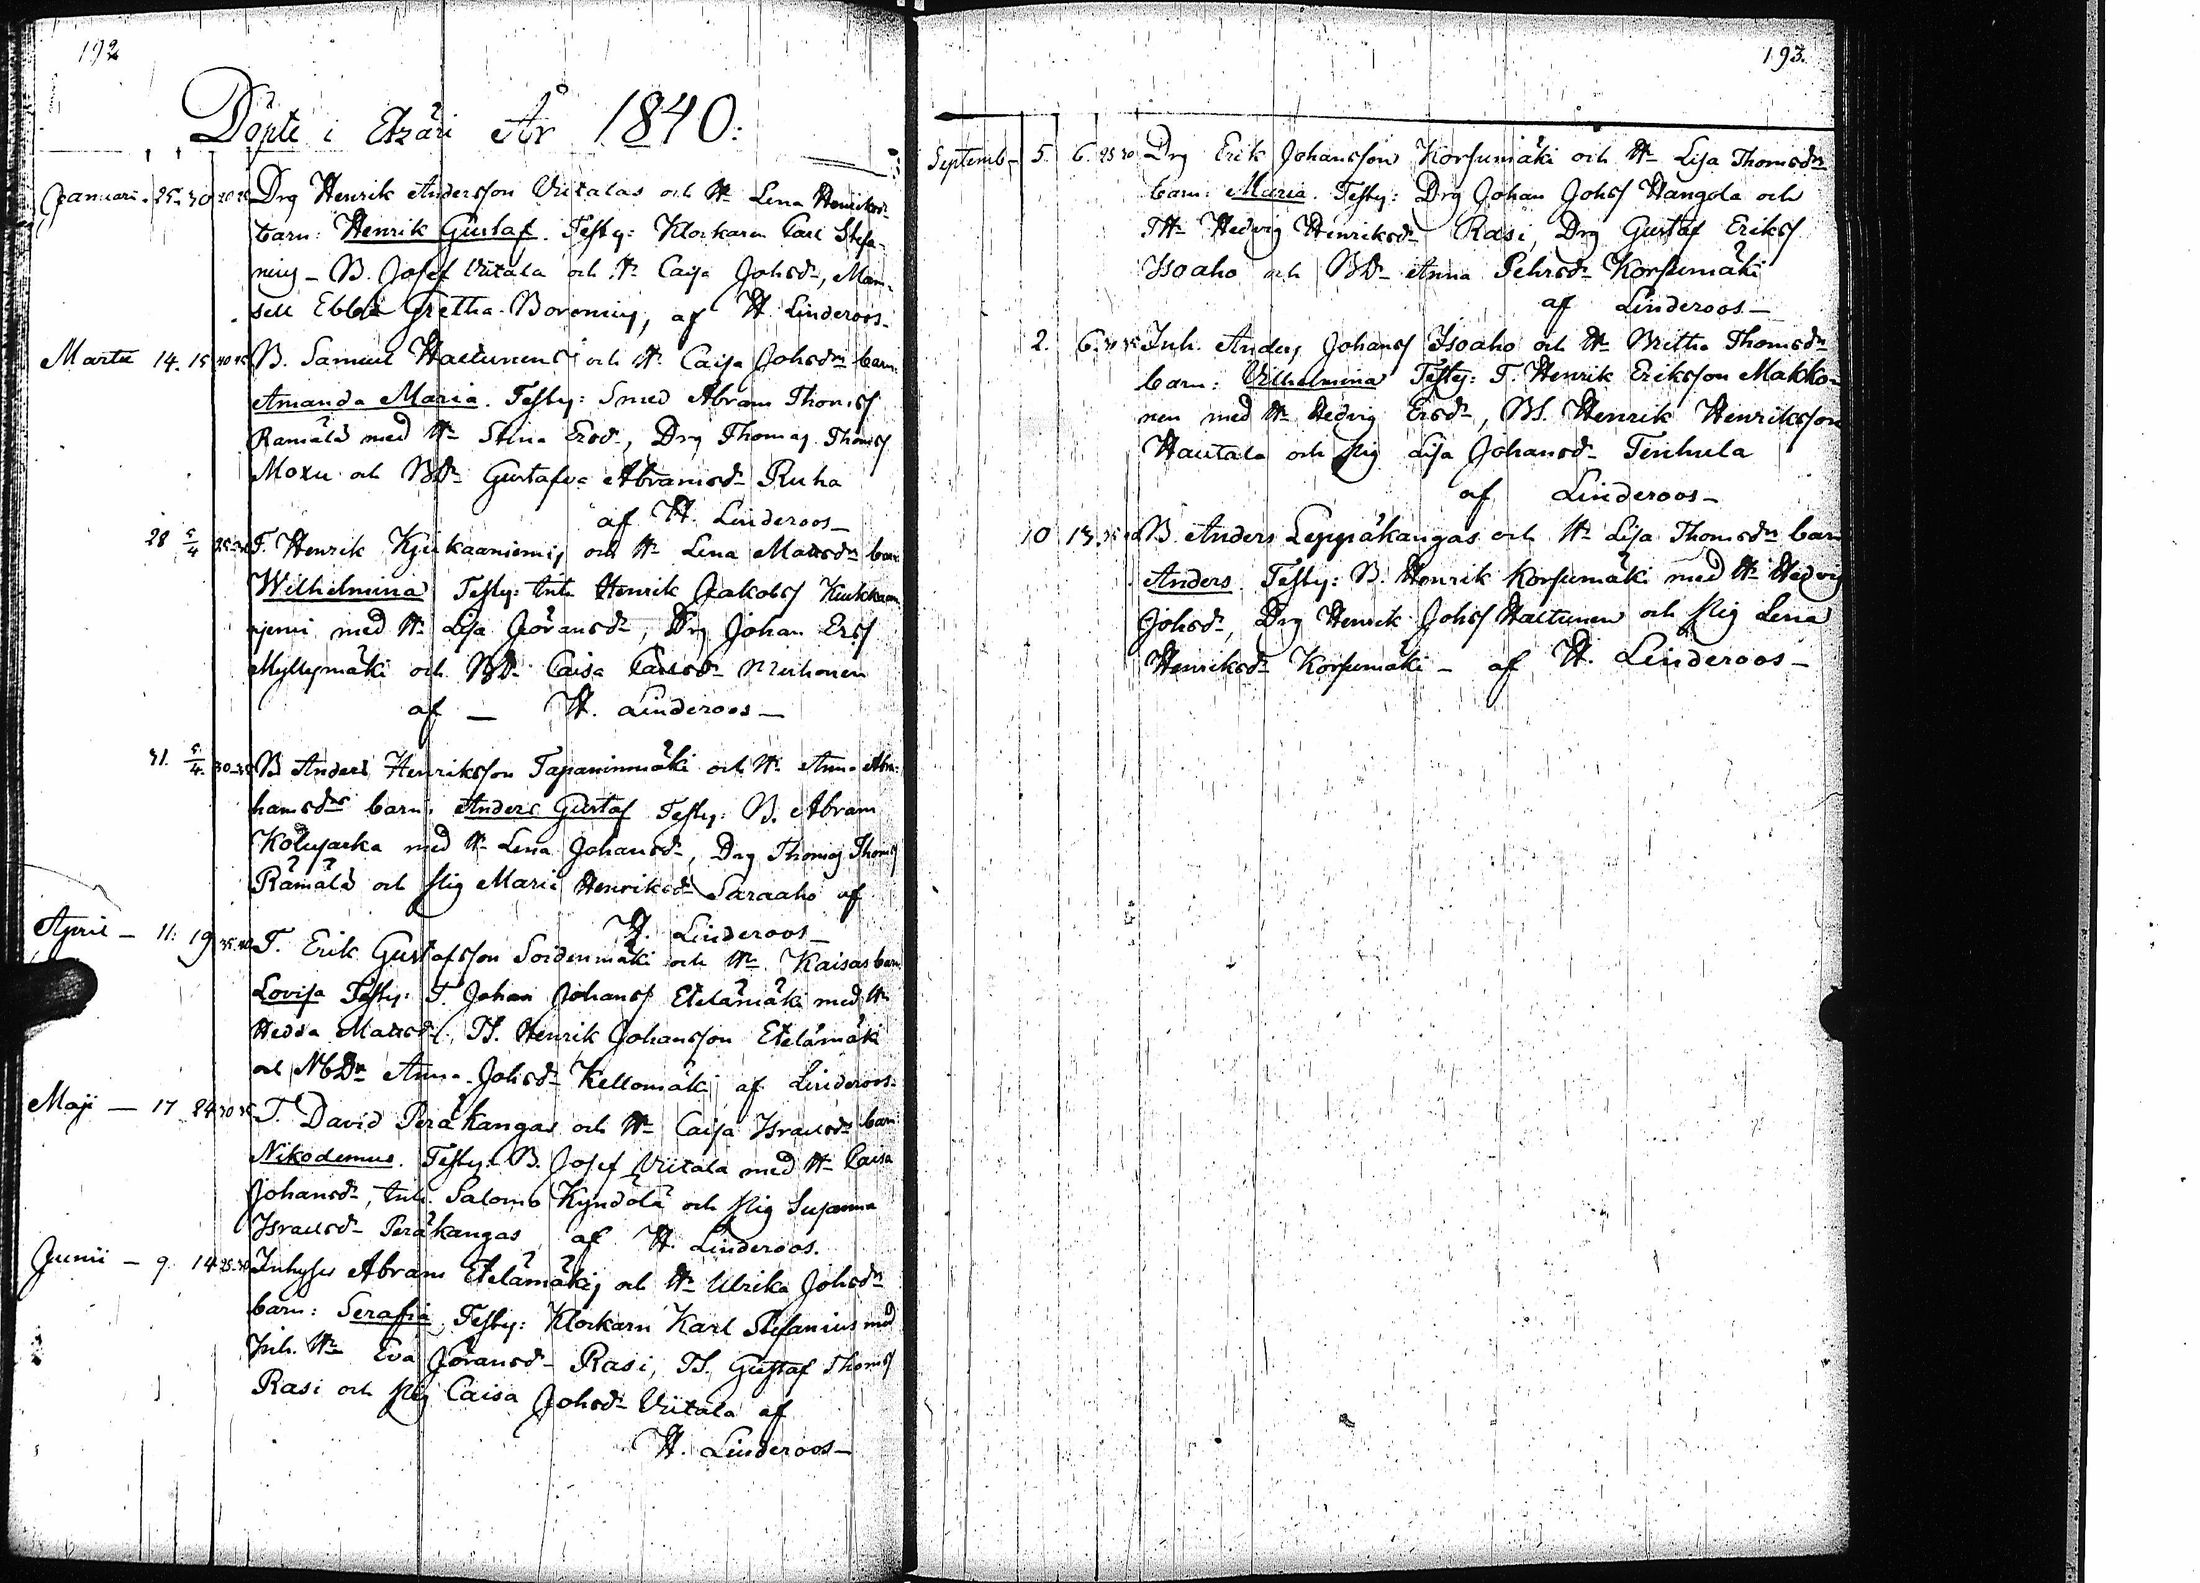 192
Döpte i Etzäri År 1840:
Januari. 25. 30 20 25 Drg Henrik Andersson Viitalas och H. Lena Henriksdr
barn: Henrik Gustaf. Testg: Klockaren Carl Stefa-
nius – B. Josef Viitala och H. Caisa Johsdr, Mam-
sell Ebba Gretha Borenius, af H. Linderoos.
Martii 14. 15 40 45 B. Samuel Haltunens och H. Caisa Johsdrs barn:
Amanda Maria. Testg: Smed Abram Thomss
Rämälä med H. Stina Ersdr, Drg Thomas Thomss
Moxu och BDr Gustafva Abramsdr Ruha
af H. Linderoos –
28 5/4 25 30 T. Henrik Kiukaaniemis och H. Lena Mattsdrs barn
Wilhelmina Testg: Inh. Henrik Jakobss Kiukkaan-
niemi med H. Lisa Göransdr, Drg Johan Erss
Myllymäki och BDr Caisa Carlsdr Niuhonen
af – H. Linderoos –
31. 5/4. 30 35 B Anders Henriksson Tapaninmäki och H. Anna Abra-
hamsdrs barn: Anders Gustaf Testg: B. Abram
med H. Lena Johansdr, Drg Thomas Thomss
Rämälä och Pig Maria Henriksdr Saraaho af
H. Linderoos –
April – 11. 19 35 40 T. Erik Gustafsson Soidenmäki och H. Kaisas barn
Lovisa Testg: T. Johan Johanss Etelämäki med H.
Hedda Mattsdr, TS. Henrik Johansson Etelämäki
och Anna Johsdr Kellomäki af Linderoos.
Maji – 17 24 30 35 T. David Peräkangas och H. Caisa Israelsdrs barn
Nikodemus. Testg: B. Josef Viitala med H. Caisa
Johansdr, Inh. Salomo Kyndölä och Pig Susanna
Israelsdr Peräkangas af H. Linderoos.
Junii – 9. 14 25 30 Inhyses Abram Etelämäkis och H. Ulrika Johsdrs
barn: Serafia, Testg: Klockarn Karl Stefanius med
Inh. H. Eva Göransdr Rasi, TS. Gustaf Thomss
Rasi och Pig Caisa Johsdr Viitala af
H. Linderoos –
193.
Septemb– 5. 6. 25 30 Drg Erik Johansson Korsumäki och H. Lisa Thomsdrs
barn: Maria. Testg: Drg Johan Johss Hangola och
TH. Hedvig Henriksdr Rasi, Drg Gustaf Erikss
Isoaho och BDr Anna Pehrsdr Korsumäki
af Linderoos –
2. 6. Inh. Anders Johanss Isoaho och H. Britha Thomsdrs
barn: Vilhelmina Testg: T. Henrik Eriksson Makko-
nen med H. Hedvig Ersdr, BS. Henrik Henriksson
Hautala och Pig Lisa Johansdr Tenhula
af Linderoos –
10 13. B. Anders Leppäkangas och H. Lisa Thomsdrs barn
Anders. Testg: B. Henrik Korsumäki med H. Hedvig
Johsdr, Drg Henrik Johss Haltunen och Pig Lena
Henriksdr Korsumäki – af H. Linderoos –